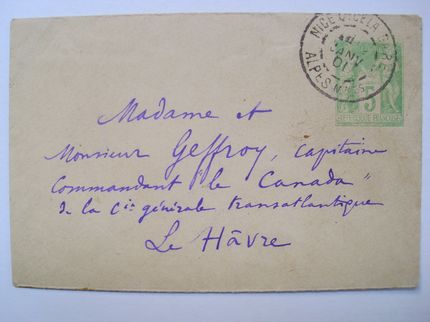 NICE PL. DE LA GARE
JANV
01
ALPES MMES
5
Madame et
Monsieur Geffroy, Capitaine
Commandant "le Canada"
de la Cie générale transatlantique
Le Hâvre